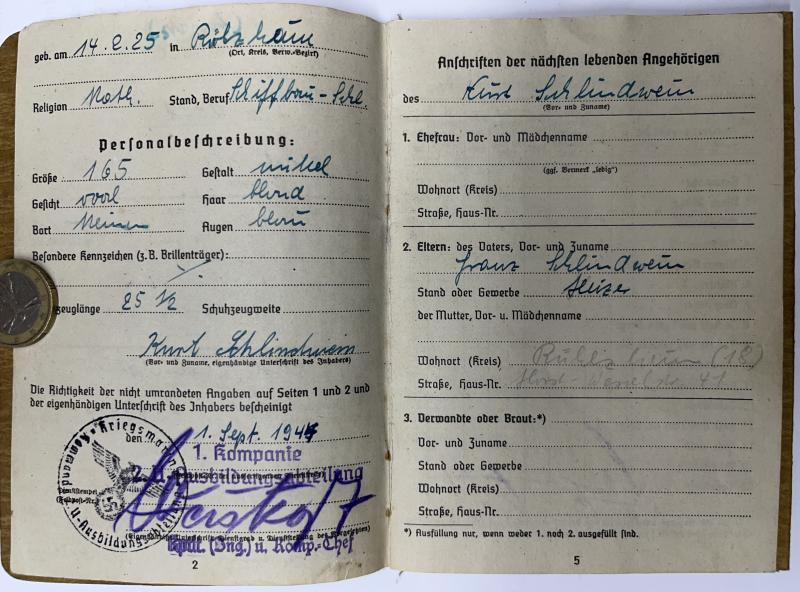 geb. am 14.2.25 in Rülzheim
(Ort, Kreis, Verw.-Bezirk)
Religion Kath. Stand, Beruf Schiffbau-
Personalbeschreibung:
Größe 165 Gestalt mittel
Gesicht oval Haar blond
Bart Augen blau
Besondere Kennzeichen (z.B. Brillenträger):
zeuglänge 25 1/2 Schuhzeugweite
Kurt Schlindwein
(Vor- und Zuname, eigenhändige Unterschrift des Inhabers)
Die Richtigkeit der nicht umrandeten Angaben auf Seiten 1 und 2 und
der eigenhändigen Unterschrift des Inhabers bescheinigt
den 1. Sept. 1944
1. Kompanie
2. U-Ausbildungsabteilung
Kommando Kriegsmarine
U-Ausbildungsabteilung
(Ing.) u. Komp.-Chef
2
Anschriften der nächsten lebenden Angehörigen
des Kurt Schlindwein
(Vor- und Zuname)
1. Ehefrau: Vor- und Mädchenname
(ggf. Vermerk „ledig")
Wohnort (Kreis)
Straße, Haus-Nr.
2. Eltern: des Vaters, Vor- und Zuname
Franz Schlindwein
Stand oder Gewerbe Heizer
der Mutter, Vor- u. Mädchenname
Wohnort (Kreis) Rülzheim (18)
Straße, Haus-Nr. Horst-Wesselstr. 41
3. Verwandte oder Braut:*)
Vor- und Zuname
Stand oder Gewerbe
Wohnort (Kreis)
Straße, Haus-Nr.
*) Ausfüllung nur, wenn weder 1. noch 2. ausgefüllt sind.
5